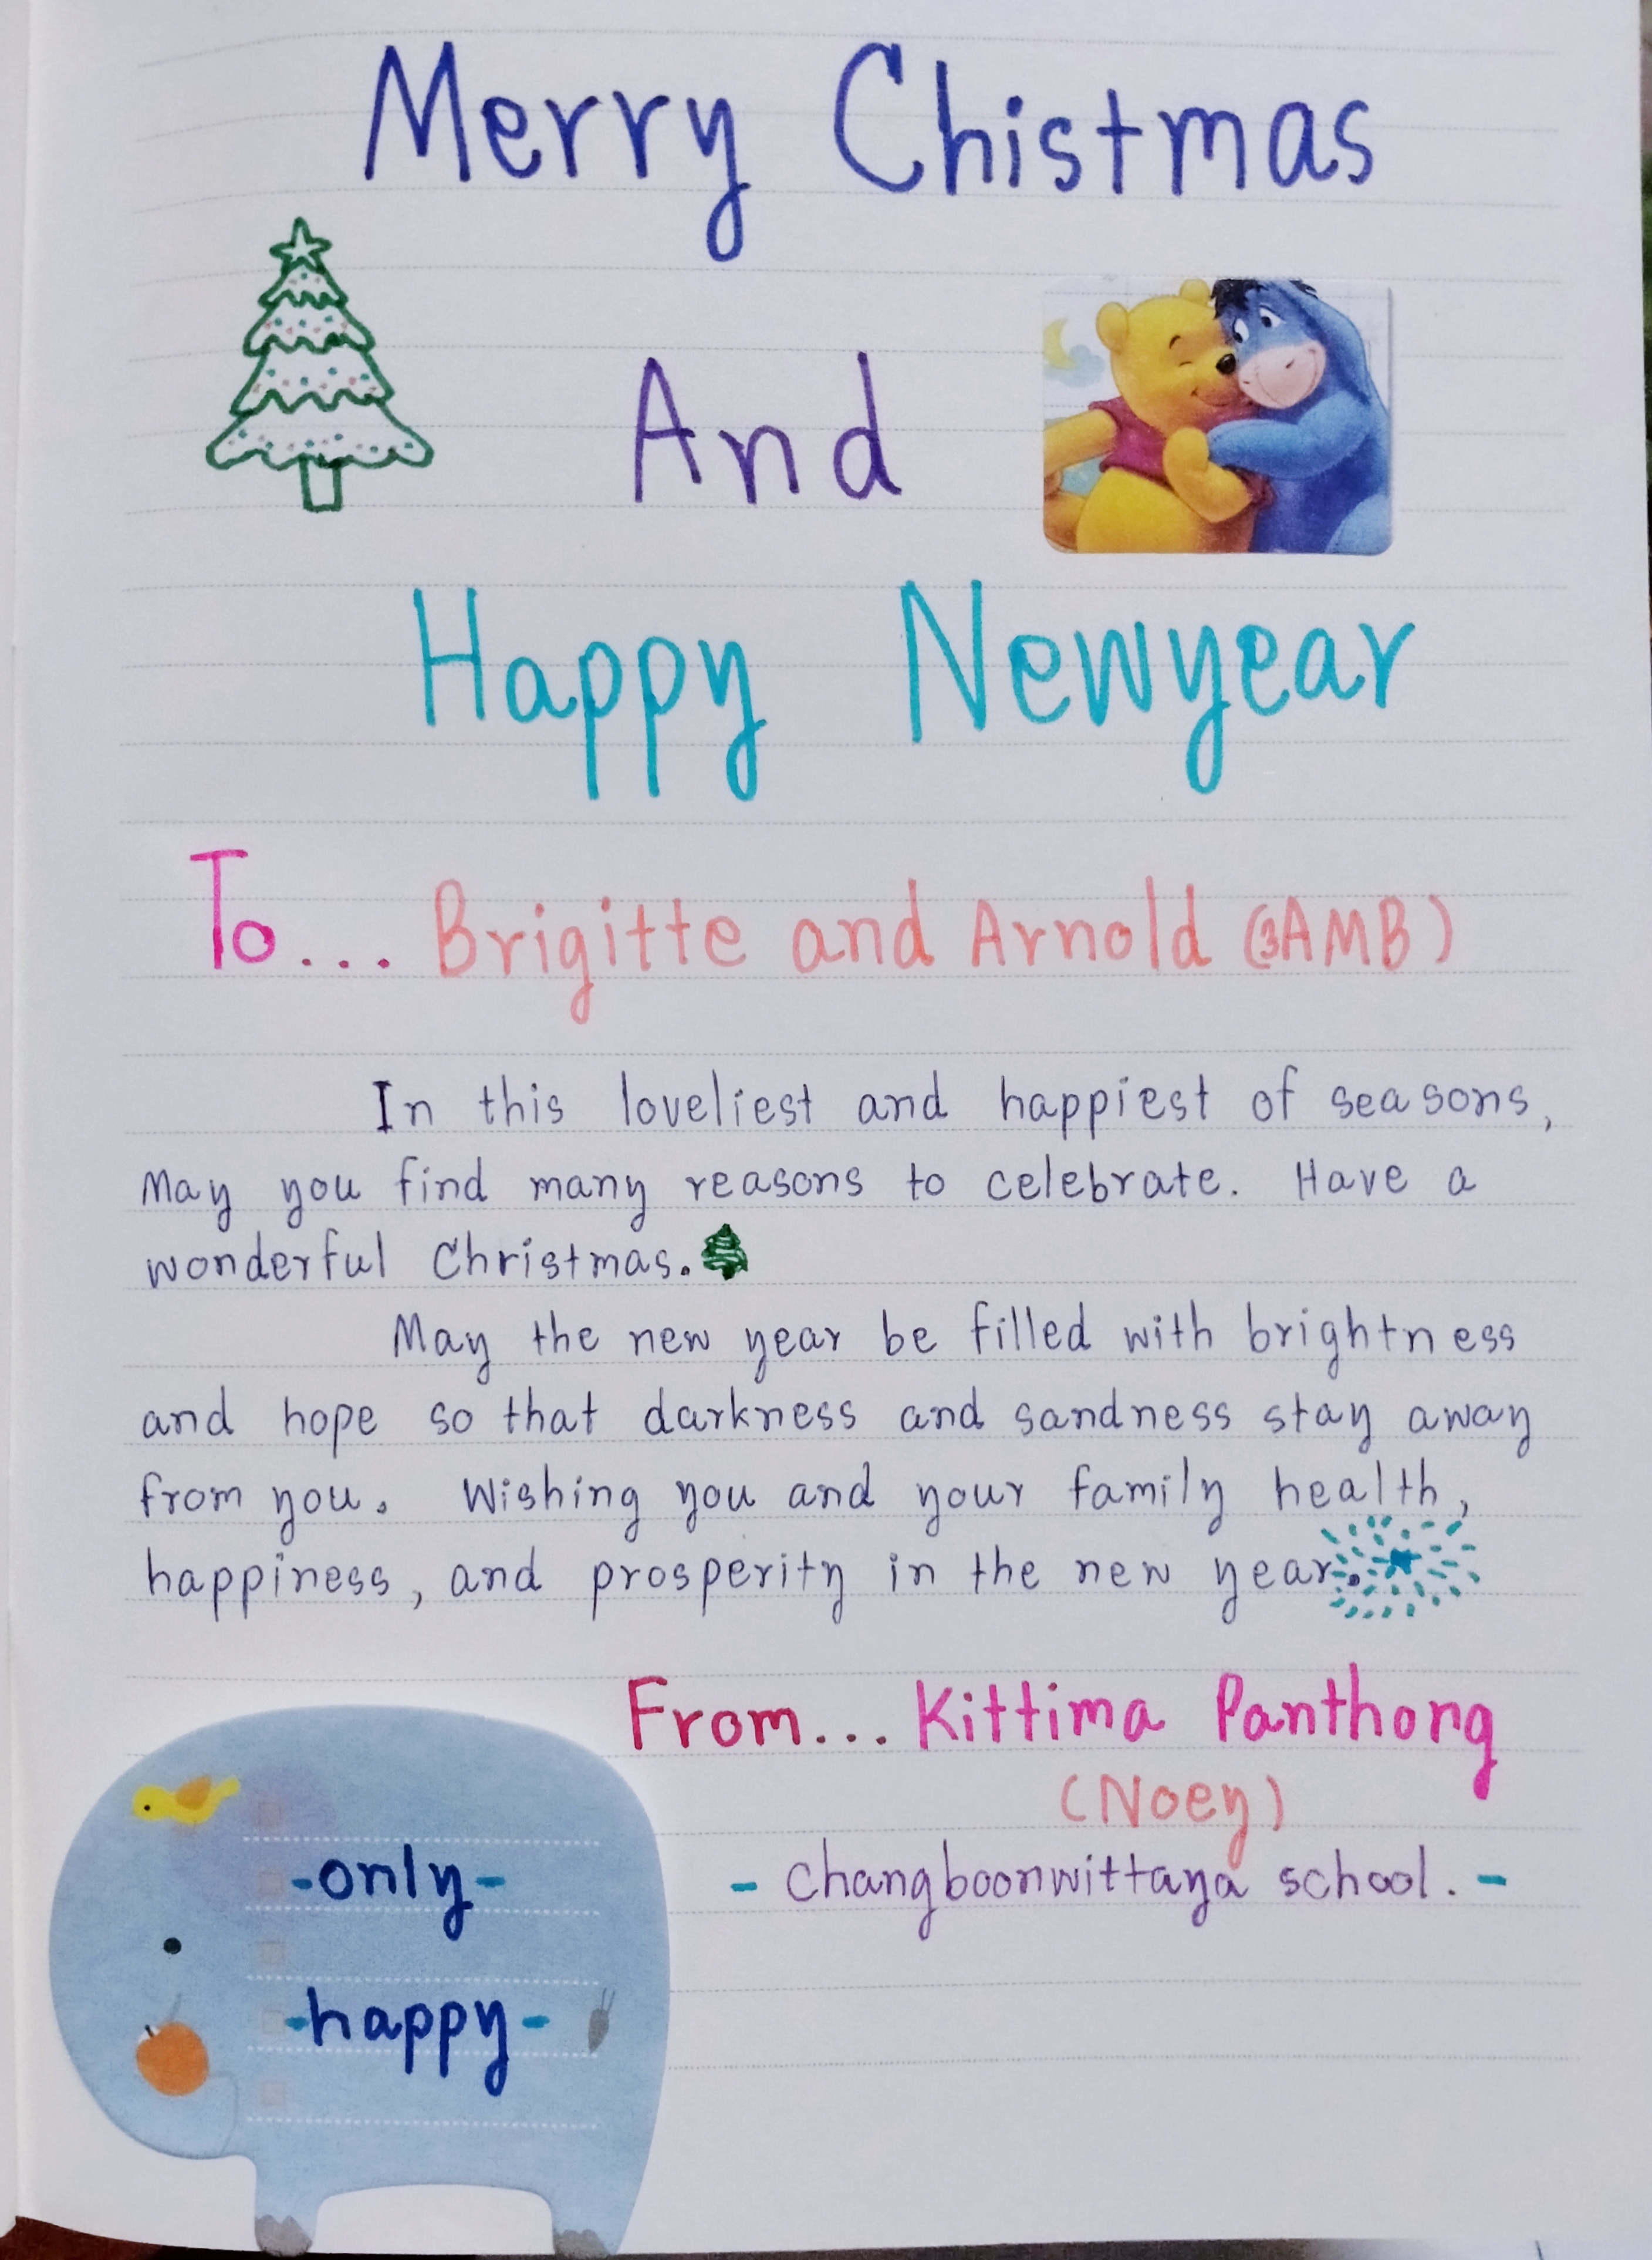 Merry Chistmas
And
Happy Newyear
To... Brigitte and Arnold (BAMB)
In this loveliest and happiest of seasons,
May you find many reasons to celebrate. Have a
wonderful Christmas.
May the new year be filled with brightness
and hope so that darkness and sandness stay away
from you. Wishing you and your family health,
happiness, and prosperity in the new year.
From... Kittima Panthong
(Noey)
- Changboonwittaya school. -
-only-
-happy-